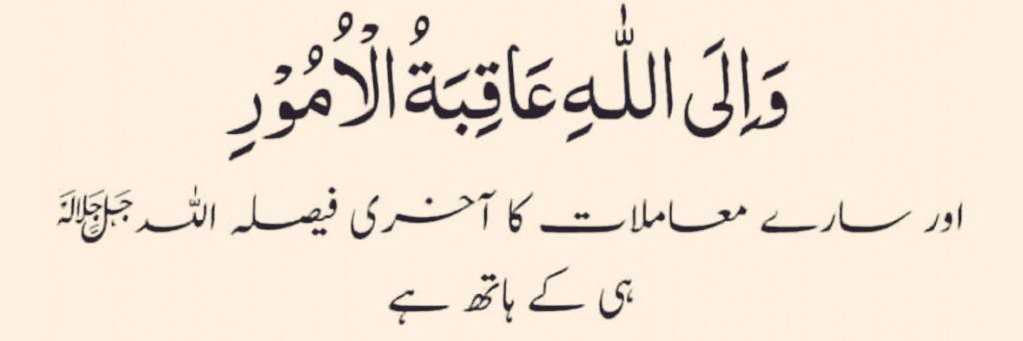 وَاِلَى اللّٰهِ عَاقِبَةُ الْاُمُوْرِ
اور سارے معاملات کا آخری فیصلہ اللہ جَلَّ جَلَالُہٗ
ہی کے ہاتھ ہے